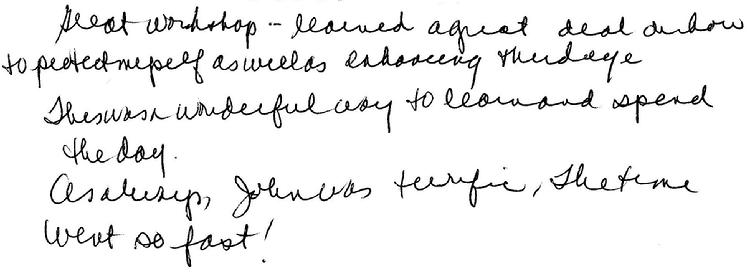 Great workshop -- learned a great deal on how
to protect myself as well as enhancing the image
This was a wonderful way to learn and spend
the day.
As always, John was terrific, the time
went so fast!